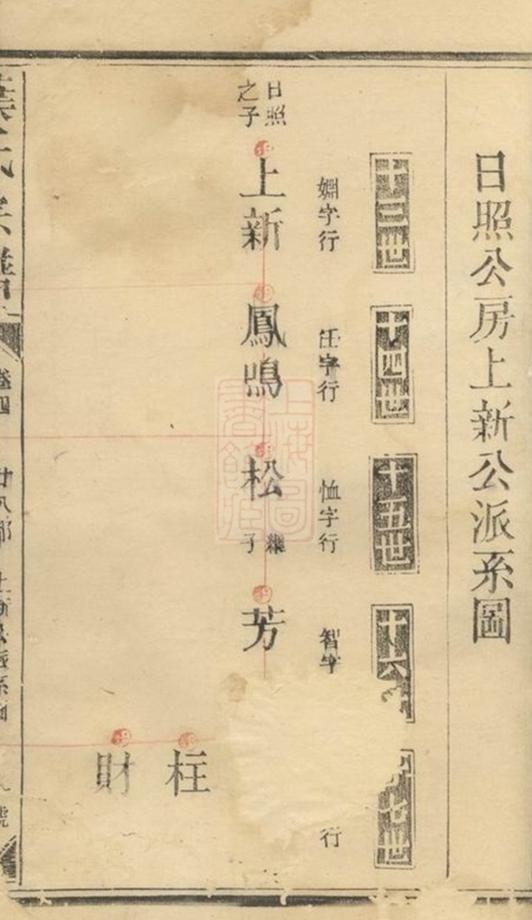 日照公房上新公派系圖
十三世
十四世
十五世
十六
七世
字行
任字行
恤字行
智字
行
日照
之子
上新
鳳鳴
松
繼
子
芳
柱
財
葉氏宗譜
卷四
上新公派系圖
號
上海圖
書館藏